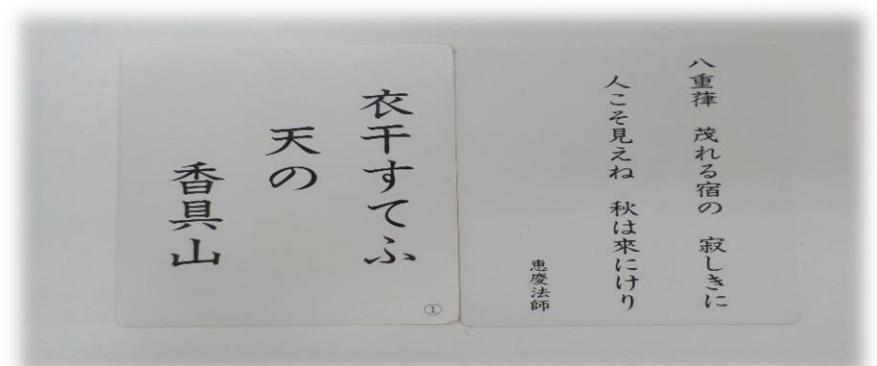 八重葎 茂れる宿の 寂しきに
人こそ見えね 秋は來にけり
恵慶法師
衣干すてふ
天の
香具山
①